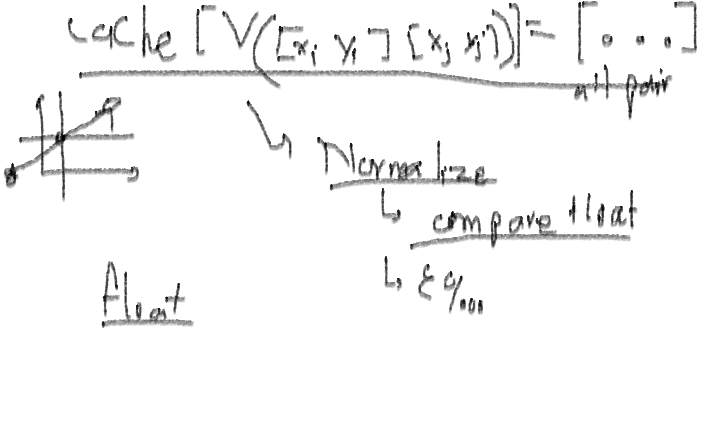 cache [V([xi yi] [xj yj])] = [. . .]
all pair
Normalize
compare float
float